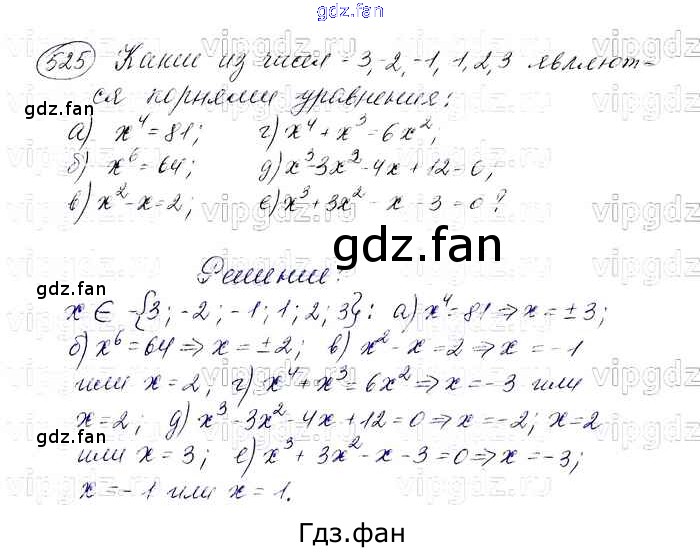 gdz.fan
525 Какие из чисел -3,-2,-1,1,2,3 являют-
ся корнями уравнения:
gdz.fan
а) x⁴=81; г) x⁴+x³=6x²;
б) x⁶=64; д) x³-3x²-4x+12=0;
в) x²-x=2; е) x³+3x²-x-3=0?
gdz.fan
Решение:
gdz.fan
x ∈ -{3; -2; -1; 1; 2; 3}: а) x⁴=81 ⇒ x=±3;
б) x⁶=64 ⇒ x=±2; в) x²-x=2 ⇒ x=-1
или x=2; г) x⁴+x³=6x² ⇒ x=-3 или
x=2; д) x³-3x²-4x+12=0 ⇒ x=-2; x=2
gdz.fan
или x=3; е) x³+3x²-x-3=0 ⇒ x=-3;
x=-1 или x=1.
Гдз.фан